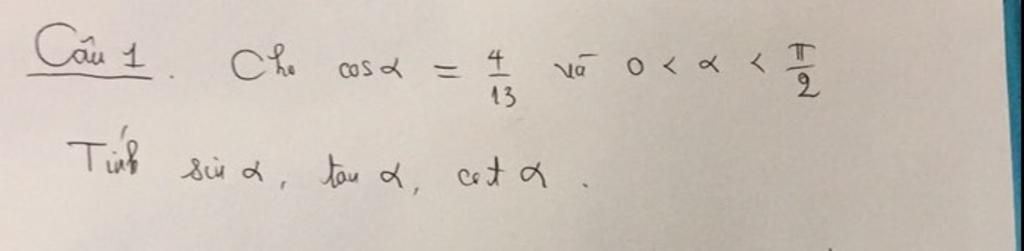 Câu 1. Cho cos α = 4/13 và 0 < α < π/2
Tính sin α, tan α, cot α.